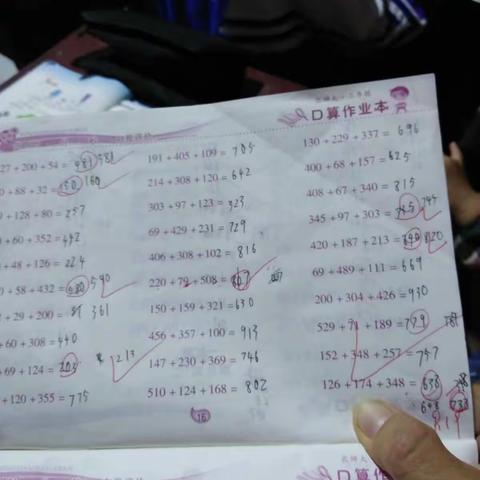 口算作业本
27 + 200 + 54 = 481 581
0 + 88 + 32 = 150 160
+ 128 + 80 = 257
+ 60 + 352 = 442
+ 48 + 126 = 224
0 + 58 + 432 = 590
+ 29 + 200 = 361
+ 60 + 308 = 440
+ 69 + 124 = 203 213
+ 120 + 355 = 775
191 + 405 + 109 = 705
214 + 308 + 120 = 642
303 + 97 + 123 = 523
69 + 429 + 231 = 729
406 + 308 + 102 = 816
220 + 79 + 508 = 807
150 + 159 + 321 = 630
456 + 357 + 100 = 913
147 + 230 + 369 = 746
510 + 124 + 168 = 802
16
130 + 229 + 337 = 696
400 + 68 + 157 = 625
408 + 67 + 340 = 815
345 + 97 + 303 = 745
420 + 187 + 213 = 820
69 + 489 + 111 = 669
200 + 304 + 426 = 930
529 + 71 + 189 = 779 789
152 + 348 + 257 = 757
126 + 174 + 348 = 638
648
口算作